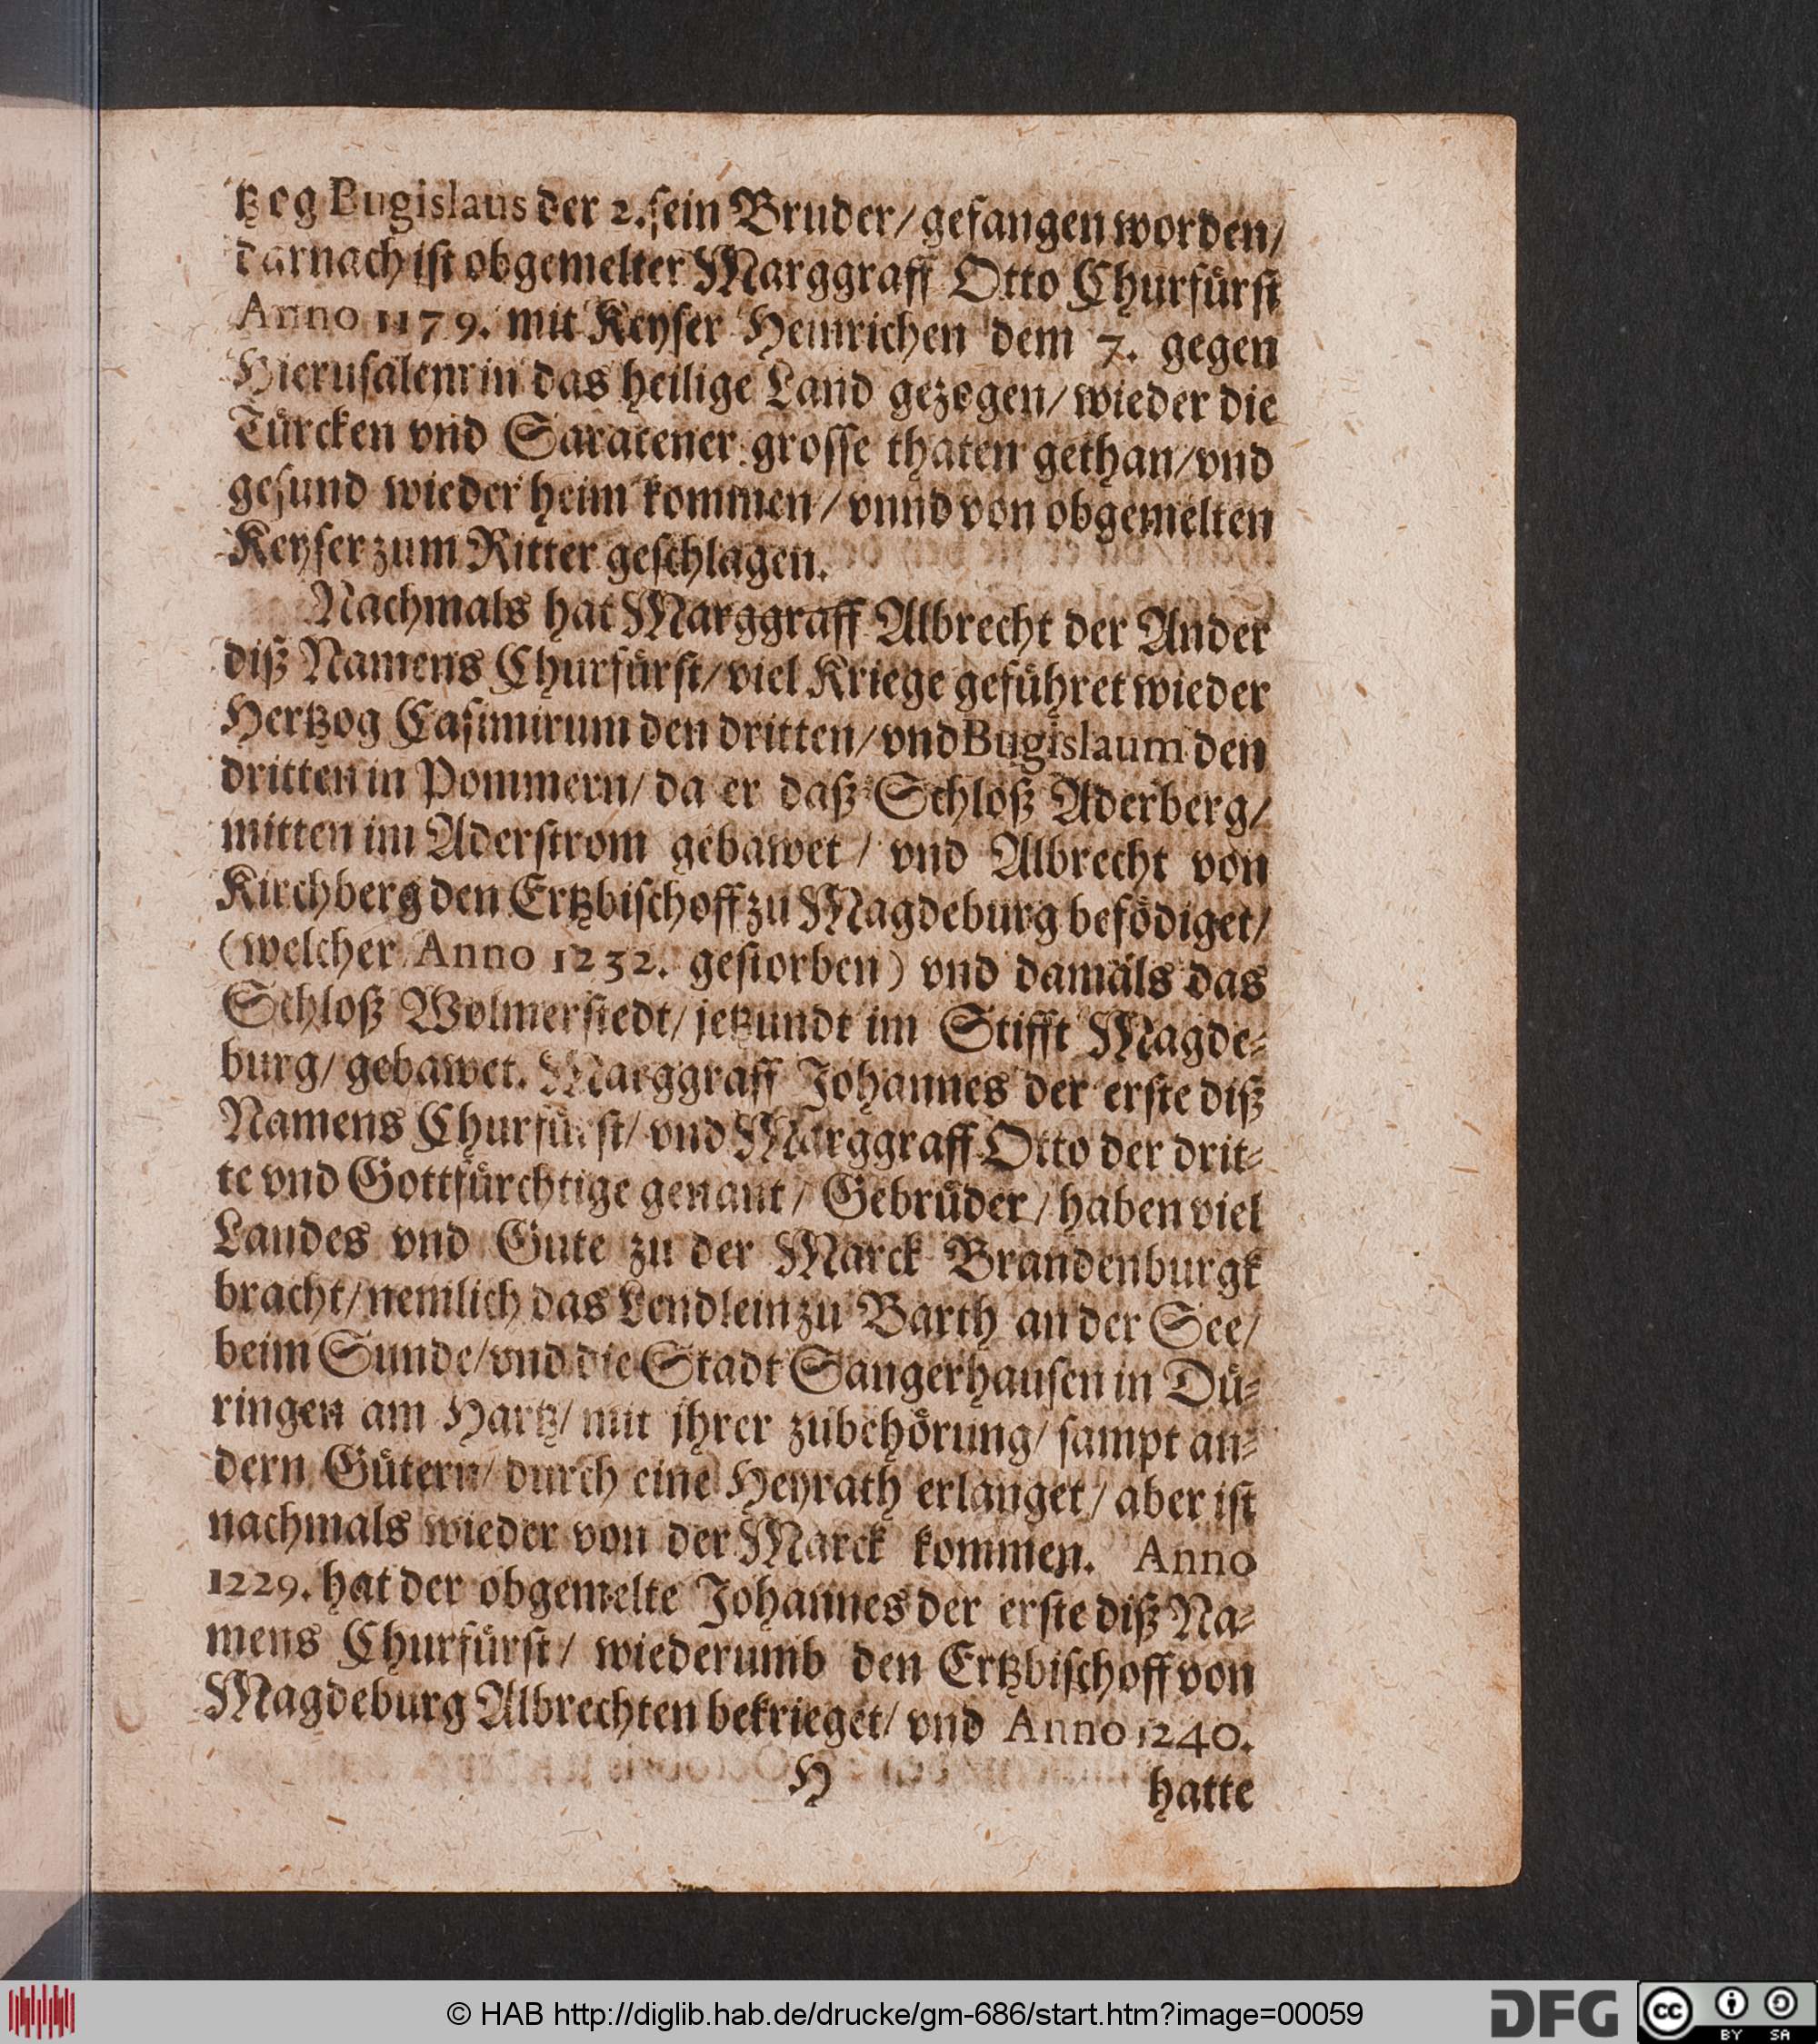 tzog Bugislaus der 2. sein Bruder/ gefangen worden/
darnach ist obgemelter Marggraff Otto Churfürst
Anno 1179. mit Keyser Heinrichen dem 7. gegen
Hierusalem in das heilige Land gezogen/ wieder die
Türcken vnd Saracener grosse thaten gethan/ vnd
gesund wieder heim kommen/ vnnd von obgemelten
Keyser zum Ritter geschlagen.
Nachmals hat Marggraff Albrecht der Ander
diß Namens Churfürst/ viel Kriege geführet wieder
Hertzog Casimirum den dritten/ vnd Bugislaum den
dritten in Pommern/ da er daß Schloß Aderberg/
mitten im Aderstrom gebawet/ vnd Albrecht von
Kirchberg den Ertzbischoff zu Magdeburg befödiget/
(welcher Anno 1232. gestorben) vnd damals das
Schloß Wolmerstedt/ jetzundt im Stifft Magde-
burg/ gebawet. Marggraff Johannes der erste diß
Namens Churfürst/ vnd Marggraff Otto der drit-
te vnd Gottfürchtige genant/ Gebrüder/ haben viel
Landes vnd Gute zu der Marck Brandenburgk
bracht/ nemlich das Lendlein zu Barth an der See/
beim Sunde/ vnd die Stadt Sangerhausen in Dü-
ringen am Hartz/ mit jhrer zubehörung/ sampt an-
dern Gütern/ durch eine Heyrath erlanget/ aber ist
nachmals wieder von der Marck kommen. Anno
1229. hat der obgemelte Johannes der erste diß Na-
mens Churfürst/ wiederumb den Ertzbischoff von
Magdeburg Albrechten bekrieget/ vnd Anno 1240.
H
hatte
© HAB http://diglib.hab.de/drucke/gm-686/start.htm?image=00059
DFG
cc BY SA